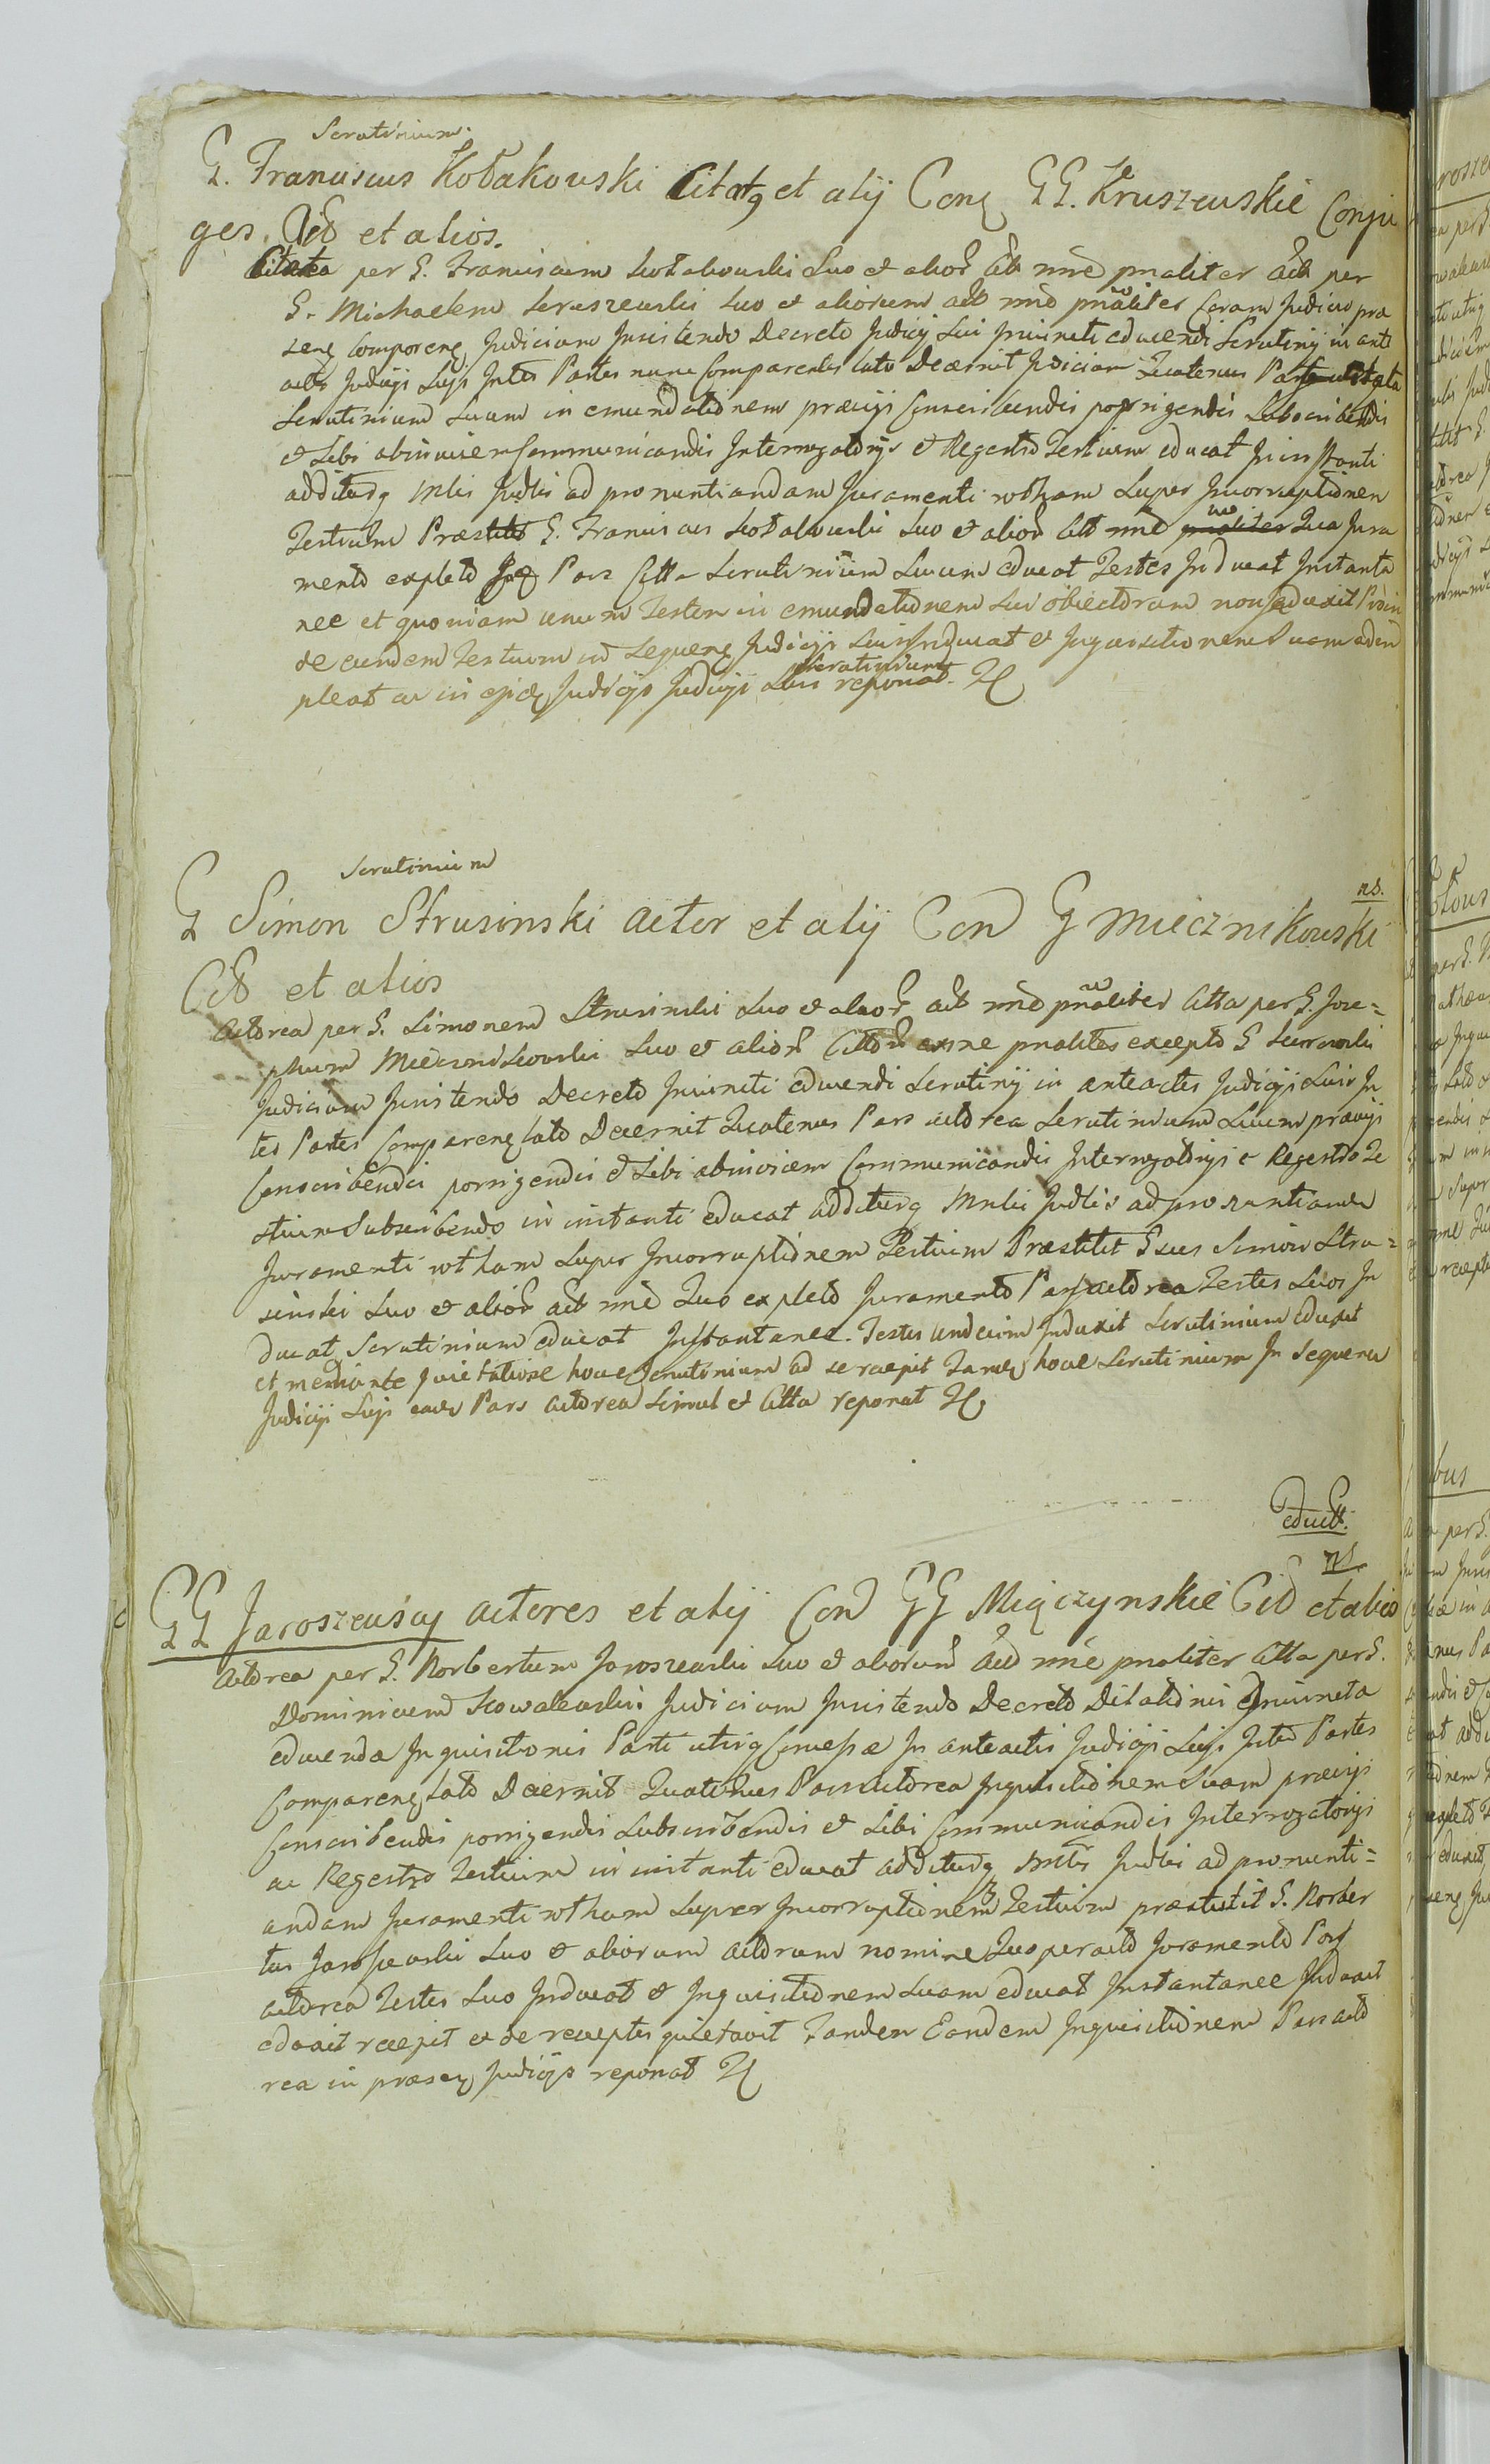 Scrutinium.
G. Franciscus Kołakowski Citatq et alij Conq GG. Kruszewskie Conju
ges. Actt et alios.
Citata per G. Franciscum Kołakowski Suo et alior Citt nnē pnaliter Act per
G. Michaelem Kruszewski Suo et aliorum act nnō pnaliter Coram Judicio prae
senq Comparenq Judicium Insistendo Decreto Judicij Sui Injuncti educendi Scrutinij in ante
actis Judicijs Suis Inter Partes nunc Comparentes lato Decernit Judicium Quatenus Pars Citata
Scrutinium Suum in emundationem praevijs Conscribendis porrigendis Subscribendis
et Sibi abinvicem Communicandis Interrogatorijs et Regestro Testium educat In instanti
additurq Mtis Judlis ad pronuntiandam Juramenti rotham Super Incorruptionem
Testium Praestitit G. Franciscus Kołakowski Suo et alior Citt nnē Quo Jura
mento expleto Pars Citta Scrutinium Suum educat Testes Inducat Instanta
nee et quoniam unum Testem in emundationem Sui objectorum non eduxit Proin
de eundem Testium in Sequenq Judicijs Suis Inducat et Inquisitionem Suam adim
pleat ac in ejsdq Judicijs Judicijs Suis Scrutinium reponat. H

Scrutinium
ns.
G Simon Strusinski Actor et alij Con G Miecznikowski
Citt et alios
Actorea per G. Simonem Strusinski Suo et alior act nnō pnaliter Citta per G. Jose=
phum Miecznikowski Suo et alior Cittor nne pnaliter excepto G
Judicium Insistendo Decreto Injuncti educendi Scrutinij in anteactis Judicijs Suis In
ter Partes Comparenq lato Decernit Quatenus Pars Actorea Scrutinium Suum praevijs
Conscribendis porrigendis et Sibi abinvicem Communicandis Interrogatorijs e Regestro Te
stium Subscribendo in instanti educat additurq Mtis Judlis ad pronuntiandam
Juramenti rotham Super Incorruptionem Testium Praestitit Gsus Simon Stru=
sinski Suo et alior act nnē Quo expleto Juramento Pars Actorea Testes Suos In
ducat Scrutinium educat Instantanee. Testes undecim Induxit Scrutinium eduxit
et mediante Quietatione hocce Scrutinium ad se recepit Tandq hocce Scrutinium In Sequenq
Judicijs Suis eadq Pars Actorea Simul et Citta reponat H

Eductt.
ns.
GG Jaroszewscy Actores et alij Con GG Mięczynskie Citt et alios
Actorea per G. Norbertum Jaroszewski Suo et aliorum Act nnē pnaliter Citta per G.
Dominicum Kowalewski Judicium Insistendo Decreto Dilationis Injuncta
educenda Inquisitionis Parti utriq Concessae In anteactis Judicijs Suis Inter Partes
Comparenq lato Decernit Quatenus Pars Actorea Inquisitionem Suam praevijs
Conscribendis porrigendis Subscribendis et Sibi Communicandis Interrogatorijs
ac Regestro Testium in instanti educat additurq Mtis Judlis ad pronunti=
andam Juramenti rotham Super Incorruptionem Testium praestitit G. Norber
tus Jaroszewski Suo et aliorum Actorum nomine Quo peracto Juramento Pars
Actorea Testes Suo Inducat et Inquisitionem Suam educat Instantanee Induxit
eduxit recepit et de receptis quietavit Tandem Eandem Inquisitionem Pars Acto
rea in praesenq Judicijs reponat H